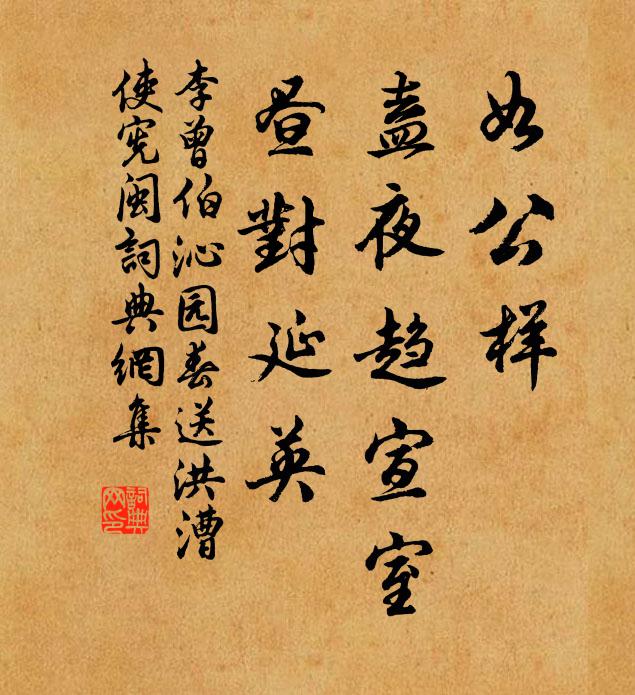 如公样
盍夜趋宣室
昼對延英
李曾伯沁园春送洪漕
使宪闽詞典網集
詞典网印